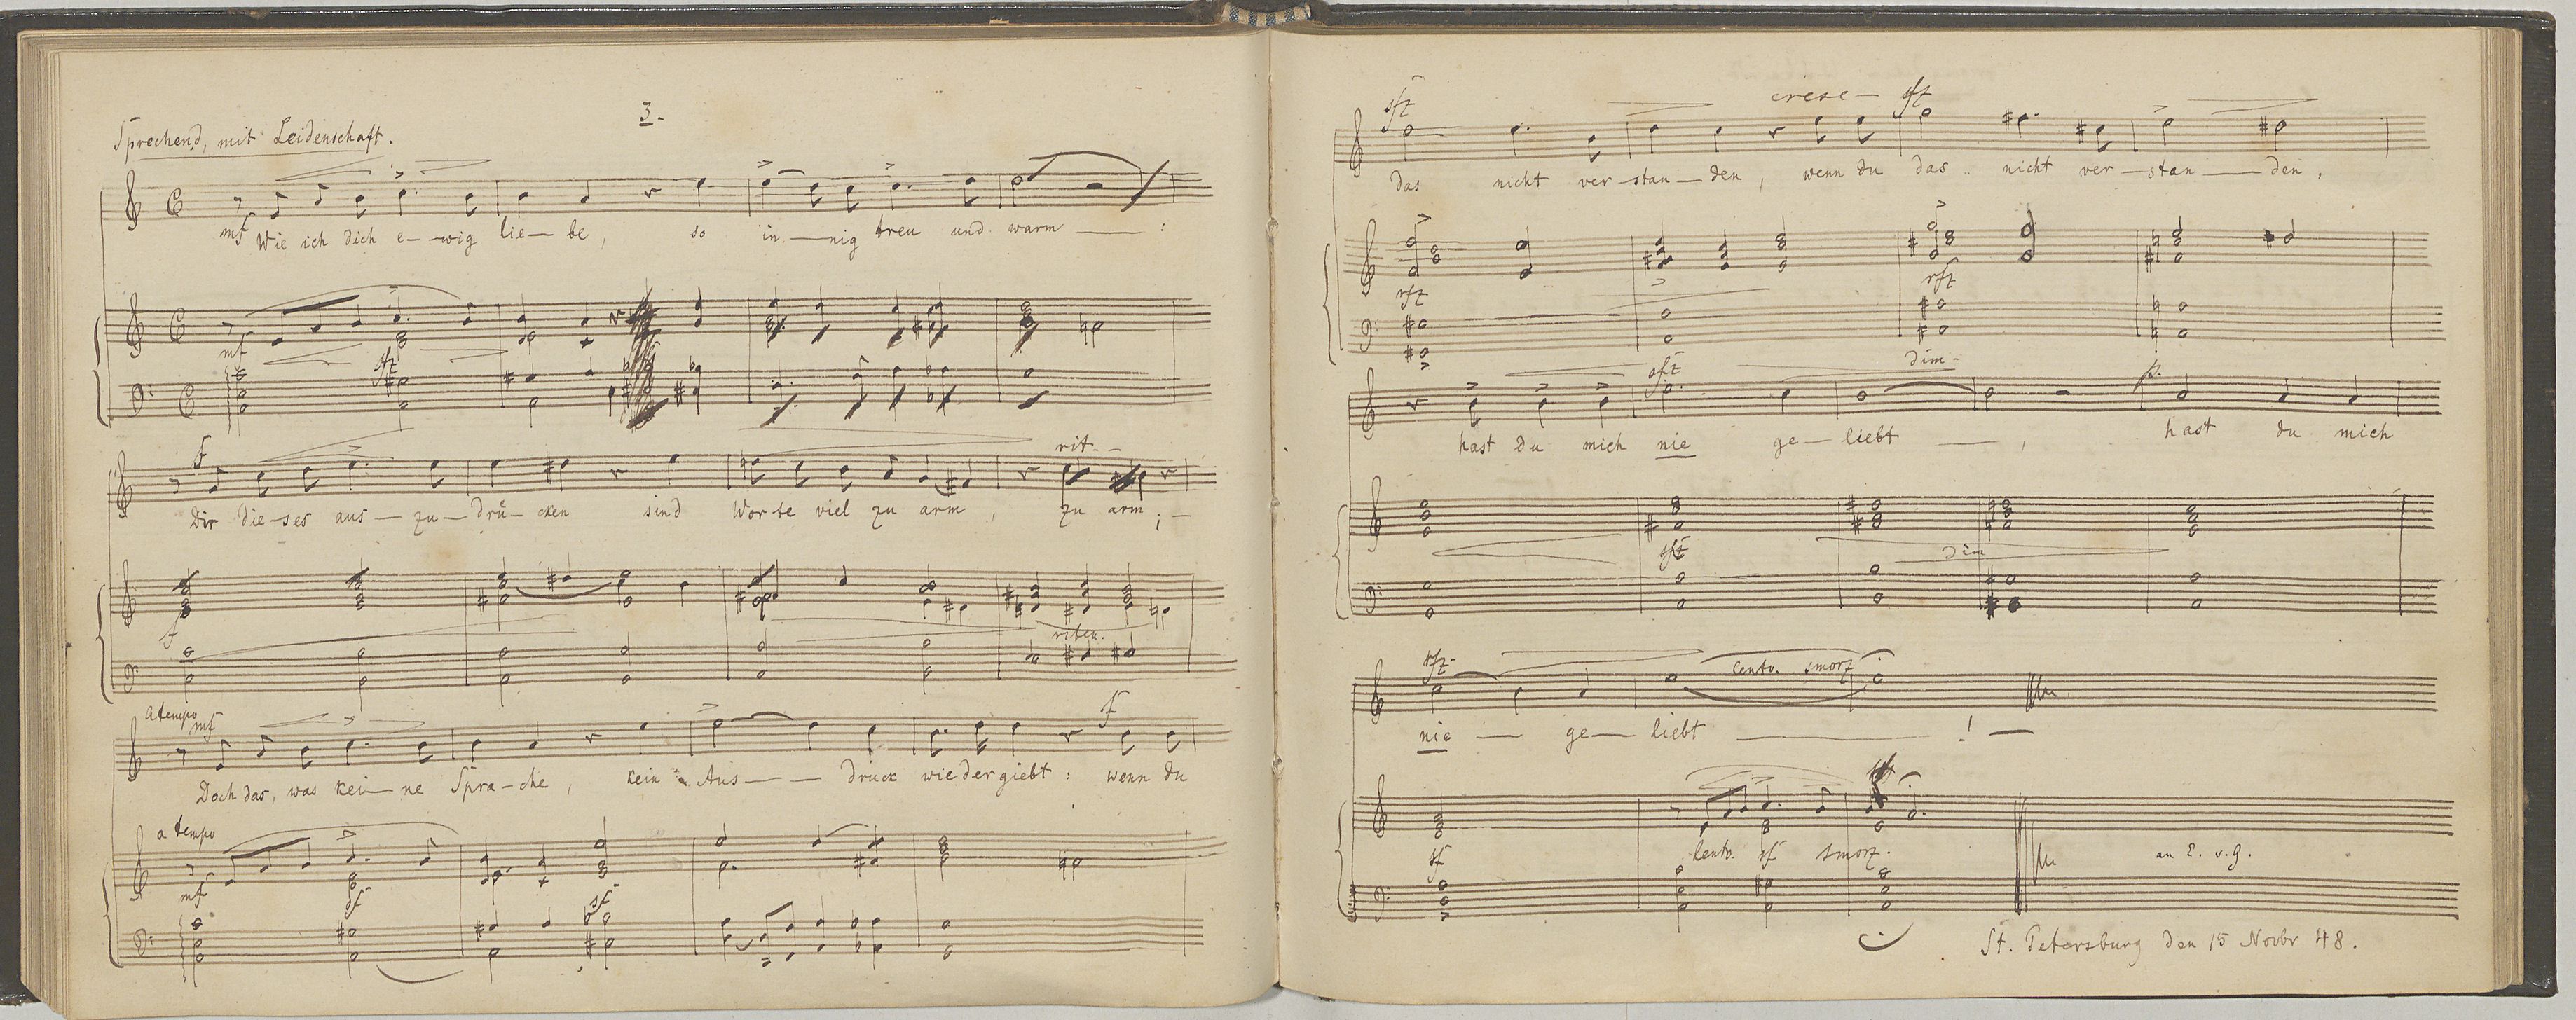 3.
Sprechend, mit Leidenschaft.
mf Wie ich dich e--wig lie--be, so in--nig treu und warm —:
mf sft
f rit--
Dir die-ses aus--zu--drü--cken sind Worte viel zu arm, zu arm; —
f riten.
a tempo mf f
Doch das, was kei--ne Spra-che, kein Aus-- -- druck wiedergiebt: wenn du
a tempo
mf sf sf
sft cresc— sft
das nicht ver-stan--den, wenn du das nicht ver-stan-- --den,
rft rft
sft dim- p.
hast du mich nie ge--liebt —, hast du mich
sft dim
rfz- lento. smorz
nie — ge--liebt — ! —
sf lento. sf smorz.
an E. v. G.
St. Petersburg den 15 Novbr 48.